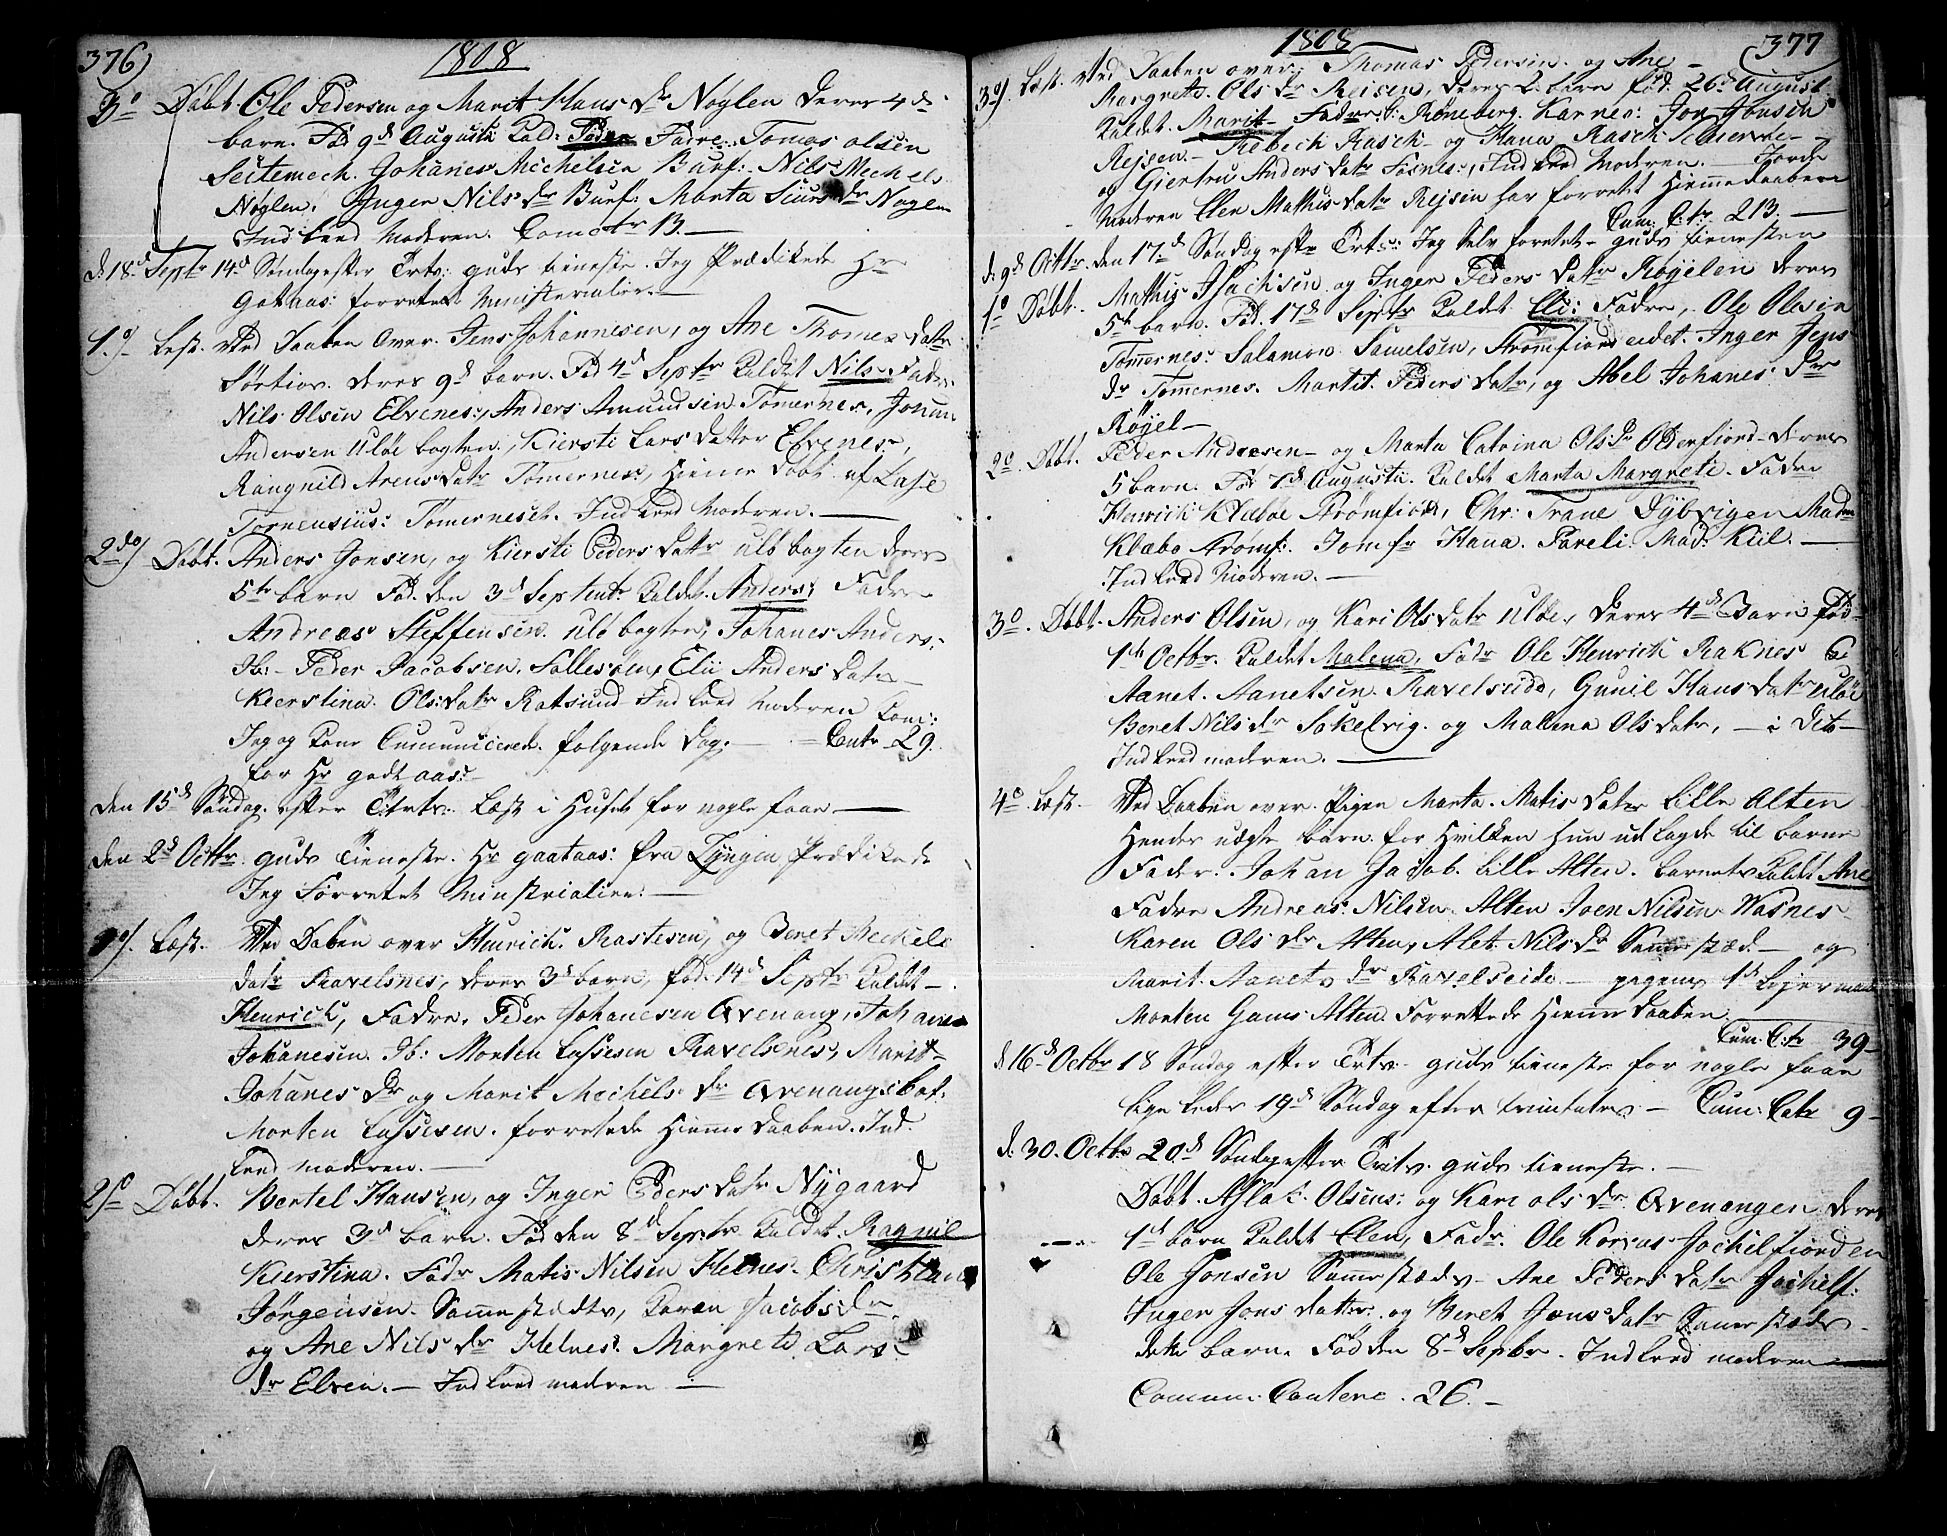 376)
1808
3º Døbt Ole Pedersen og Marit Hans dr Nøglen deres 4de
barn. Fød 9d Augusti Kald: Peder Fadre. Tomas olsen
Johanes Michelsen Burf: Nils Mechels
Nøglen. Inger Nils dr Burf: Marta Siurs dr Nøglen
Indleed Moderen. Comctr 13.
d. 18d Septr 14d Søndag efter Trts: guds tieneste. Jeg Prædikede Hr
Gataas: forretet Ministerialier.
1.º Læst. Ved Daaben over. Jens Johannesen, og Ane Thomes datr
Sørtiov. deres 9d barn. Fød 4d Septr Kaldet Nils Fadre
Nils Olsen Elvenes:, Anders Amundsen Tømernes, Johan
Andersen Uløe bogten., Kiersti Lars datter Elvenes,
Rangnild Arens datr Tømernes, Hieme Døbt af Lase
Tornensius: Tømernesch. Indleed Moderen.
2do) Døbt. Anders Jonsen, og Kiersti Peders Datr Ulø bogten deres
5te barn Fød. den 3d Septembr Kaldet. Anders; Fadre
Andreas Steffensen. Ulø bogten, Johanes Anders:
Ib:- Peder Jacobsen. Follesøen, Elii Anders Datr
Kierstina. Ols: datr Rotsund Indleed Moderen Com:
Jeg og Kone Cumunicerede følgende dag: Cmtr 29.
for Hr gadtaas:
den 15d Søndag efter Trts: Læst i Huset for nogle faae
den 2d Octbr. guds Tieneste. Hr gaataas: fra Lyngen Prædikede
Jeg Forretet Ministrialier:
1º). Læst. Ved Daben over Hinrich: Rastesen, og Beret Meckels
datr Ravelsnes, deres 3d barn, fød. 14d Septr Kaldet
Henrich, Fadre, Peder Johanesen Qvenang, Johanes
Johanesen. Ib: Morten Lassesen Ravelsnes, Marit
Johanes Dr og Marit Mechels dr Qvenangsbot.
Morten Lassesen. forretede Hieme Daaben. Ind
leed moderen.
2º Døbt. Bertel Hansen, og Inger Peders datr Nygaard
deres 3d barn. Fød den 8d Septr Kaldet. Ragnil
Kierstina. Fadr Matis Nilsen Helnes. Christian
Jørgensen. Samestædts, Karen Jacobs dr
og Ane Nils dr Helnes. Margrete Lars
dr Elven. Indleed moderen
1808
377
3º). Læst. Ved Daaben over Thomas Pedersen. og Ane
Margrete. Ols dr Reisen, deres 2. barn fød. 26d August
Kaldet. Marit Fadre. S: Røneberg. Karnes: Jon Jonsen
Rejsen. Rasch og Hana Rasch
og Giertru Anders datr Fosnes:, Indleed Moderen. Jorde
Moderen Elen Mathis datr Rejsen har forretet Hiemedaaben
Cum: Ctr 213.
d. 9d Octbr. den 17d Søndag eftr Trts: Jeg Selv foretet guds tienesten
1º Døbt. Mathis Isachsen og Inger Peders datr Røyelen deres
5t barn. Fød. 17d Septr Kaldet Eli: Fadre, Ole Olsen
Tømernes: Salamon Samelsen, Strømfiord eidet. Inger Jens
dr Tømernes. Martit. Peders datr, og Abel Johanes Dr
Røyel
2º. Døbt. Peder Andresen og Marta Catrina Ols: Dr Olderfiord deres
5 barn. Fød 7d Augusti. Kaldet Marta Margrete. Fadre
Hinrich Klæboe Strømfiord, Chr: Trane Dybvigen Mad
Klæbo Strømf: Jomfr Hana. Pareli: Mad: Kiil.
Indleed Moderen.
3º. Døbt. Anders Olsen, og Kari Ols datr Uløe, deres 4d Barn fød
1t Octbr. Kaldet Malena, Fadr Ole Henrich Raknes
Aanet. Aanetsen. Ravelseide, Gunil Hans datr Uløe
Beret Nils dr Sokelvig. og Malena Ols datr, i Dito
Indleed moderen.
4º Læst. Ved Daaben over. Pigen Marta. Matis Datr Lille Alten
Hendes uægte barn. for Hvilken hun udlagde til barne
Fader. Johan Jacob. Lille Alten. barnets Kaldet Ane
Fadre Andreas: Nilsen. Alten Joen Nilsen Wasnes
Karen Ols dr Alten, Alet Nils dr Same stæd og
Marit. Aanets dr Ravelseide pigens 1te Lejermaal
Morten Gams Alten Forrettede Hieme Daaben.
Cum: Ctr 39
d. 16d Octbr 18 Søndag efter Trts. guds tieneste for nogle faae
lige leder 19d Søndag efter trinitates Cum: Catr 9
d. 30. Octbr 20d Søndag efter Trits. guds tieneste.
Døbt. Aslak. Olsens: og Kari ols dr Qvenangen deres
1d barn Kaldet Elen, Fadr. Ole Korvas Jockelfiorden
Ole Jonsen Samestæds Ane Peders datr Jockelf:
Inger Jons datter. og Beret Jons datr Samestæds
dette barn. Fød den 8d Sepbr. Indleed moderen
Comun: Cantene. 26.